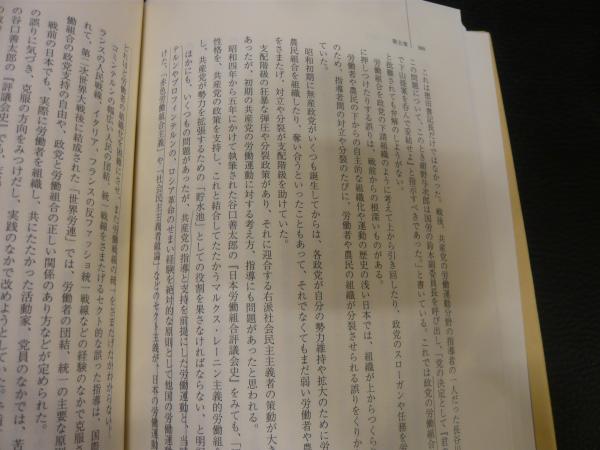 第五章
これは徳田書記長だけではなかった。戦後、共産党の労働運動分野の指導者の一人だった長谷川
の問題について、「このとき細野与
は国労の鈴木副委員長を呼び出し、「党の決定として『君
て下山提案を呑んで妥結せよ』と指示すべきであった。」と書いている。これでは政党の労働組合
と非難されても弁解のしようがない。
労働組合を政党の下請組織のように考えて上から引き回したり、政党のスローガンや任務を労
に押しつけたりする誤りは、戦前からの根深いものがある。
労働者や農民の下からの自主的な組織化や運動の歴史の浅い日本では、組織が上からつくら
のため、指導者間の対立や分裂のたびに、労働者や農民の組織が分裂させられる誤りをくりか
ていた。
昭和初期に無産政党がいくつも誕生してからは、各政党が自分の勢力維持や拡大のために労
農民組合を組織したり、奪い合うといったこともあって、それでなくてもまだ弱い労働者や農
をさまたげ、対立や分裂が支配階級を助けていた。
支配階級の狂暴な弾圧や分裂政策があり、それに迎合する右派社会民主主義者の策動が大き
あったが、初期の共産党の労働運動に対する考え方、指導にも問題があったと思われる。
昭和四年から五年にかけて執筆された谷口善太郎の『日本労働組合評議会史』をみても、「
性格を、共産党の政策を支持し、これと結合してたたかうマルクス・レーニン主義的労働組
し、共産党が勢力を拡張するための「貯水池」としての役割を果さなければならない、と明
ほかにも、いくつもの問題があったが、共産党の指導と支持を前提にした労働運動と、当時
テルンやプロフィンテルンの、ロシア革命のせまい経験を絶対的な原則として他国の労働運動
けた、「赤色労働組合主義」や、「社会民主主義者
」などのセクト主義が、日本の労働運動
ランスの人民戦線、イタリア・フランスの反ファッショ統一戦線などの経験のなかで克服さ
れて、第二次世界大戦後に結成された「世界労連」では、労働者の団結、統一の主要な原則
働組合の政党支持の自由や、政党と労働組合の正しい関係のあり方などが定められた。
戦前の日本でも、実際に労働者を組織し、共にたたかった活動家、党員のなかでは、苦
の誤りに気づき、克服の方向をみつけだし、実践のなかで改めようとしていた。
の谷口善太郎の『評議会史』でも、